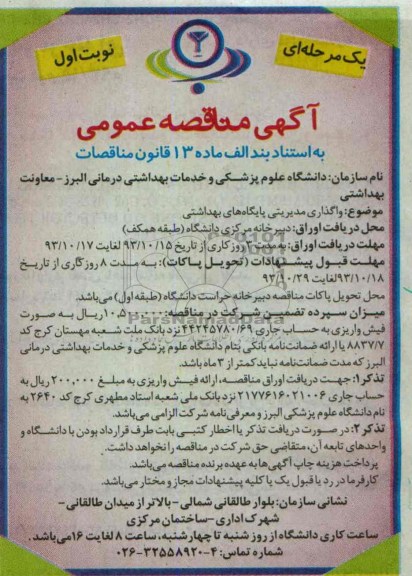 نوبت اول
یک مرحله‌ای
آگهی مناقصه عمومی
به استناد بند الف ماده ۱۳ قانون مناقصات
نام سازمان: دانشگاه علوم پزشکی و خدمات بهداشتی درمانی البرز - معاونت
بهداشتی
موضوع: واگذاری مدیریتی پایگاه‌های بهداشتی
محل دریافت اوراق: دبیرخانه مرکزی دانشگاه (طبقه همکف)
مهلت دریافت اوراق: به مدت روز کاری از تاریخ ۹۳/۱۰/۱۵ لغایت ۹۳/۱۰/۱۷
مهلت قبول پیشنهادات (تحویل پاکات): به مدت ۸ روز کاری از تاریخ
۹۳/۱۰/۱۸ لغایت ۹۳/۱۰/۲۹
محل تحویل پاکات مناقصه دبیرخانه حراست دانشگاه (طبقه اول) می‌باشد.
میزان سپرده تضمین شرکت در مناقصه: ریال به صورت
فیش واریزی به حساب جاری ۴۴۲۴۵۷۸۰/۶۹ نزد بانک ملت شعبه مهستان کرج کد
۸۸۳۷/۷ یا ارائه ضمانت‌نامه بانکی بنام دانشگاه علوم پزشکی و خدمات بهداشتی درمانی
البرز که مدت ضمانت‌نامه نباید کمتر از ۳ ماه باشد.
تذکر ۱: جهت دریافت اوراق مناقصه، ارائه فیش واریزی به مبلغ ۲۰۰,۰۰۰ ریال به
حساب جاری ۲۱۷۷۶۱۶۰۲۱۰۰۶ نزد بانک ملی شعبه استاد مطهری کرج کد ۲۶۴۰ به
نام دانشگاه علوم پزشکی البرز و معرفی‌نامه شرکت الزامی می‌باشد.
تذکر ۲: در صورت دریافت تذکر یا اخطار کتبی بابت طرف قرارداد بودن با دانشگاه و
واحدهای تابعه آن، متقاضی حق شرکت در مناقصه را نخواهد داشت.
پرداخت هزینه چاپ آگهی‌ها به عهده برنده مناقصه می‌باشد.
کارفرما در رد یا قبول یک یا کلیه پیشنهادات مجاز و مختار می‌باشد.
نشانی سازمان: بلوار طالقانی شمالی - بالاتر از میدان طالقانی -
شهرک اداری - ساختمان مرکزی
ساعت کاری دانشگاه از روز شنبه تا چهارشنبه، ساعت ۸ لغایت ۱۶ می‌باشد.
شماره تماس: ۴-۳۲۵۵۸۹۲۰-۰۲۶